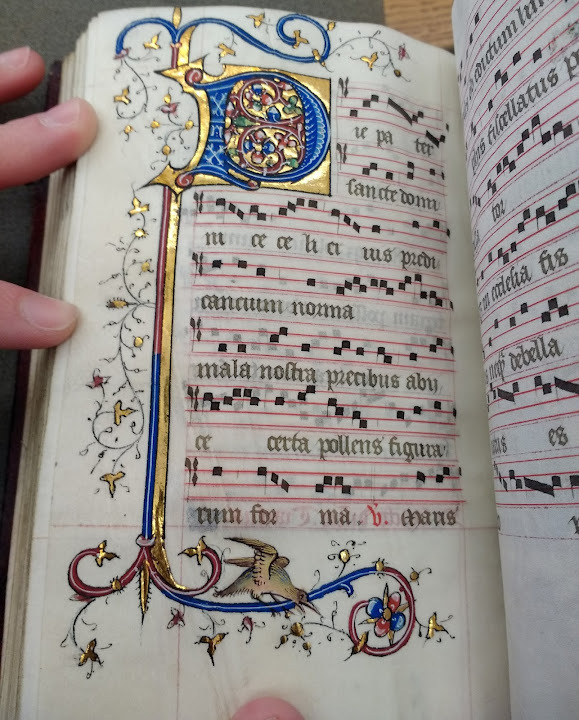 Pie pa ter
sancte domi
ni ce ce li ci ius predi
cancium norma
mala nostra precibus aby
ce certa pollens figura
rum for ma. V. Maris
tor
in ecclesia fis
debella
es